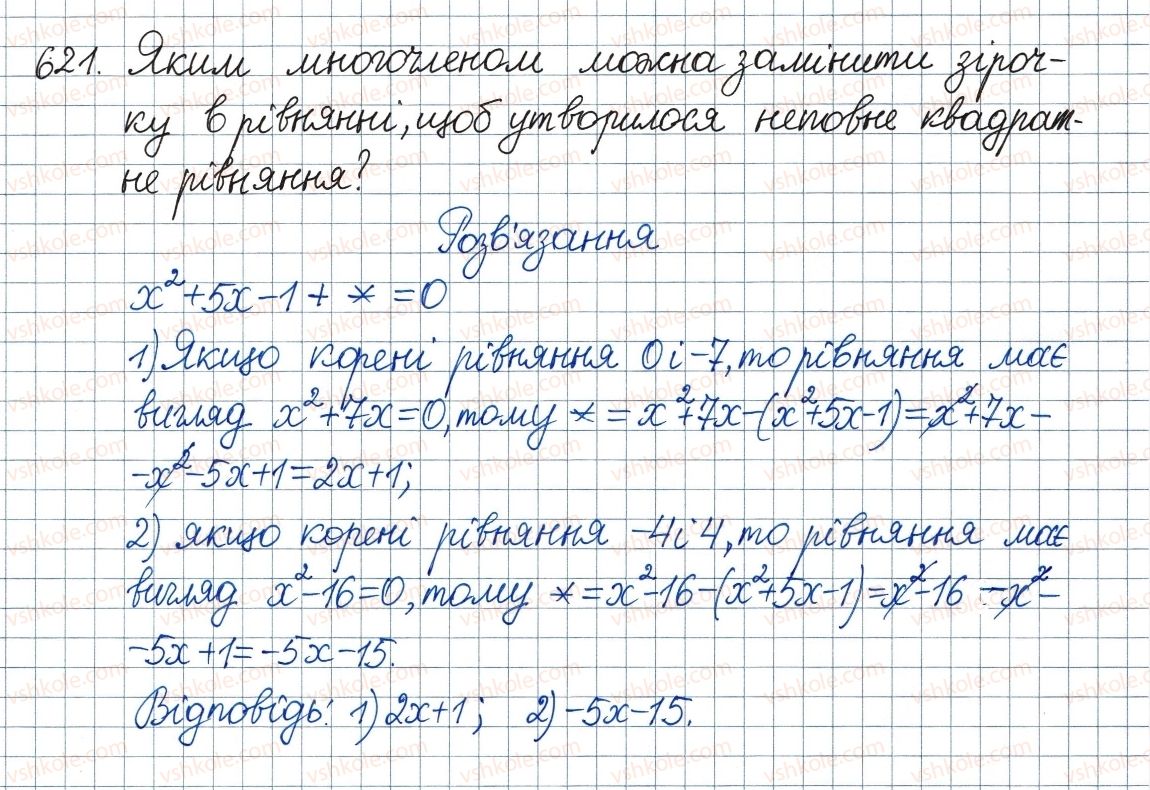 621. Яким многочленом можна замінити зіроч-
ку в рівнянні, щоб утворилося неповне квадрат-
не рівняння?
Розв'язання
x² + 5x - 1 + * = 0
1) Якщо корені рівняння 0 і -7, то рівняння має
вигляд x² + 7x = 0, тому * = x² + 7x - (x² + 5x - 1) = x² + 7x -
- x² - 5x + 1 = 2x + 1;
2) якщо корені рівняння -4 і 4, то рівняння має
вигляд x² - 16 = 0, тому * = x² - 16 - (x² + 5x - 1) = x² - 16 - x² -
- 5x + 1 = -5x - 15.
Відповідь: 1) 2x + 1; 2) -5x - 15.